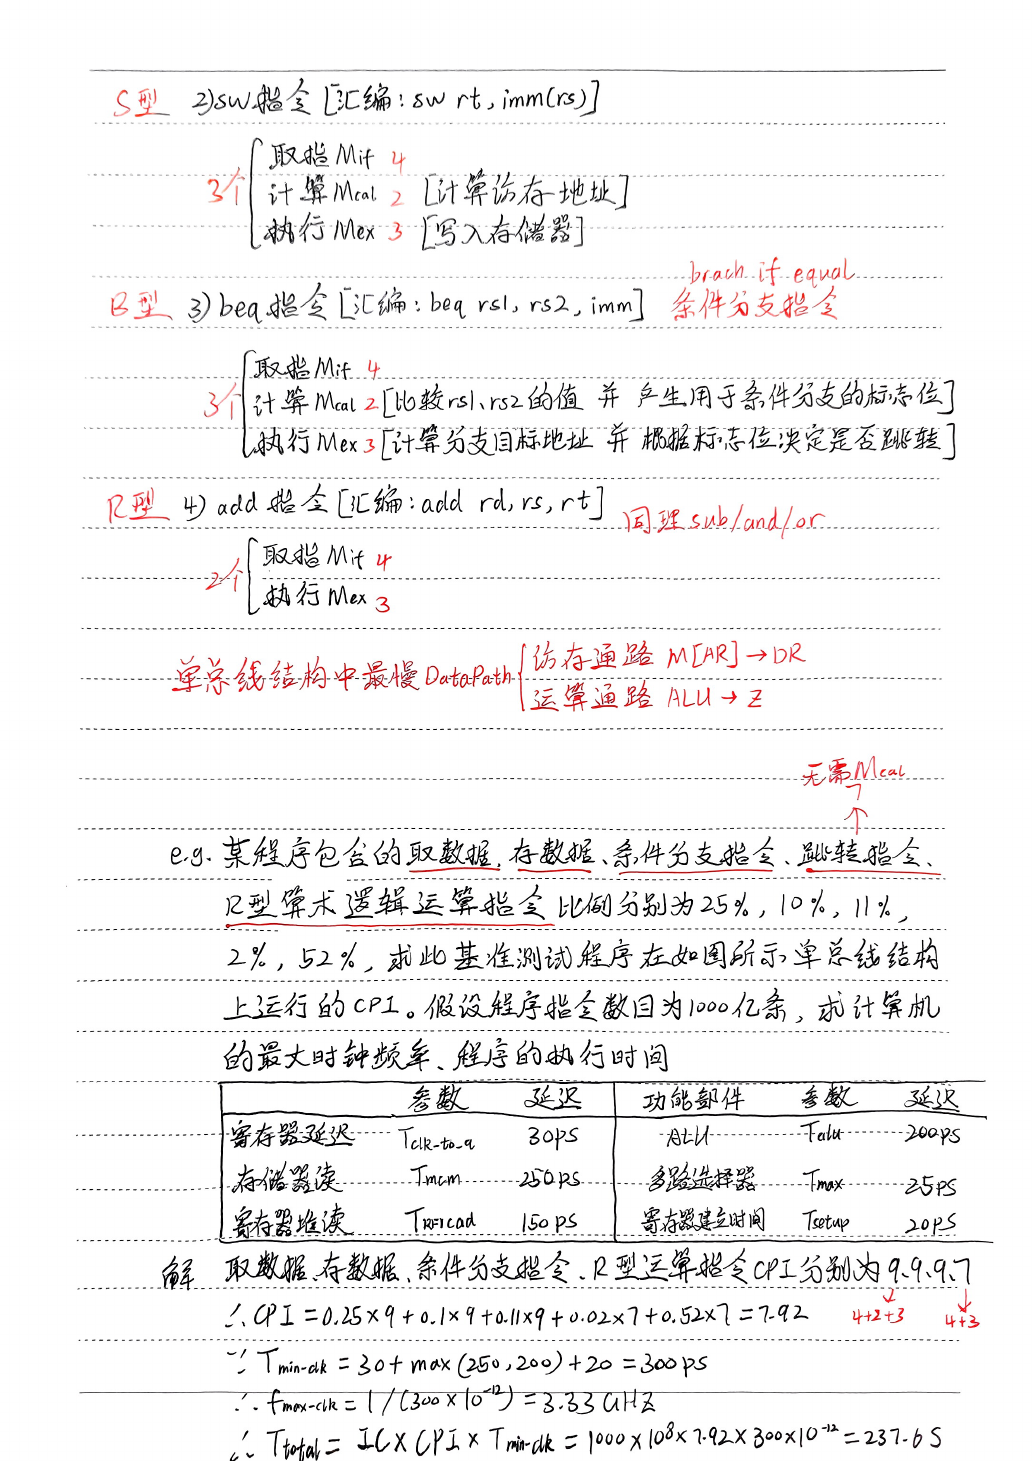 S型 2)sw指令[汇编:sw rt,imm(rs)]
取指Mif 4
3个 计算Mcal 2 [计算访存地址]
执行Mex 3 [写入存储器]
brach if equal
B型 3)beq指令[汇编:beq rs1,rs2,imm] 条件分支指令
取指Mif 4
3个 计算Mcal 2[比较rs1、rs2的值 并 产生用于条件分支的标志位]
执行Mex 3[计算分支目标地址 并 根据标志位决定是否跳转]
R型 4)add指令[汇编:add rd,rs,rt] 同理sub/and/or
取指Mif 4
2个
执行Mex 3
访存通路 M[AR]→DR
单总线结构中最慢DataPath
运算通路 ALU→Z
无需Mcal
e.g. 某程序包含的取数据、存数据、条件分支指令、跳转指令、
R型算术逻辑运算指令比例分别为25%,10%,11%,
2%,52%,求此基准测试程序在如图所示单总线结构
上运行的CPI。假设程序指令数目为1000亿条,求计算机
的最大时钟频率、程序的执行时间
参数 延迟 功能部件 参数 延迟
寄存器延迟 Tclk-to-q 30ps ALU Talu 200ps
存储器读 Tmem 250ps 多路选择器 Tmax 25ps
寄存器堆读 TRFread 150ps 寄存器建立时间 Tsetup 20ps
解 取数据、存数据、条件分支指令、R型运算指令CPI分别为9、9、9、7
∴CPI=0.25×9+0.1×9+0.11×9+0.02×7+0.52×7=7.92 4+2+3 4+3
∵Tmin-clk=30+max(250,200)+20=300ps
∴fmax-clk=1/(300×10⁻¹²)=3.33GHZ
∴Ttotal=IC×CPI×Tmin-clk=1000×10⁸×7.92×300×10⁻¹²=237.6S